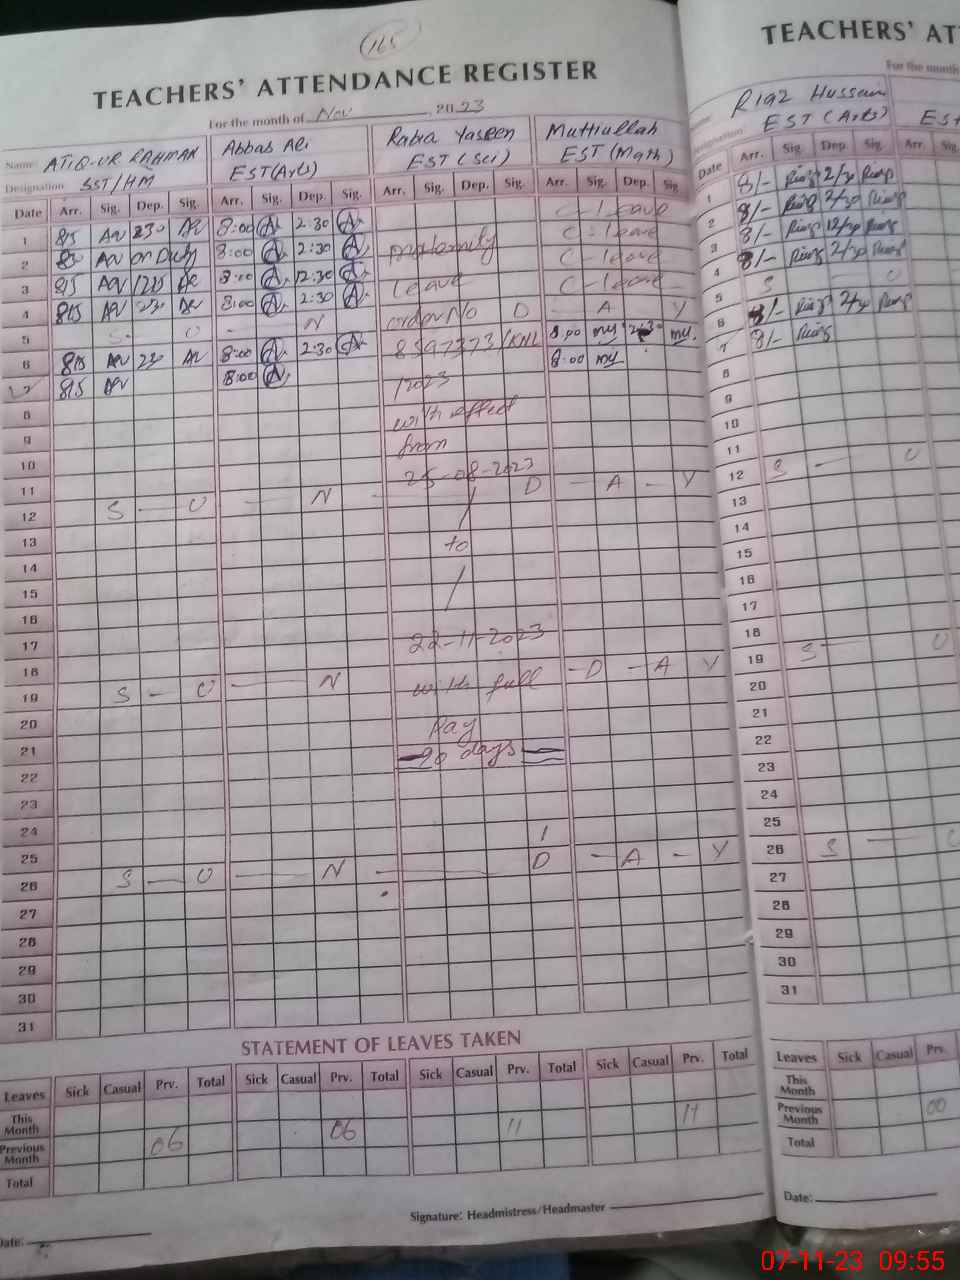 165
TEACHERS' ATTENDANCE REGISTER
For the month of Nov, 2023
Name: ATIQ-UR RAHMAN Abbas Ali Rabia Yaseen Muttiullah
Designation: SST/HM EST(Arts) EST (Sci) EST (Math)
Date Arr. Sig. Dep. Sig. Arr. Sig. Dep. Sig. Arr. Sig. Dep. Sig. Arr. Sig. Dep. Sig
1 815 230 8:00 2:30 C-leave
2 on Duty 8:00 2:30 C-leave
3 815 1230 8:00 12:30 leave C-leave
4 815 230 8:00 2:30 C-leave
5 S - U - N order No D - A Y
6 815 230 8:00 2:30 8597373/KNL 8:00 my 2:30 my.
7 815 8:00 /2023 8:00 my
8 with effect
9 from
10 25-08-2023
11
12 S - U - N - D - A - Y
13 to
14
15
16
17 22-11-2023
18
19 S - U - N with full - D - A Y
20 Pay
21 90 days
22
23
24
25
26 S - U - N - D - A - Y
27
28
29
30
31
STATEMENT OF LEAVES TAKEN
Leaves Sick Casual Prv. Total Sick Casual Prv. Total Sick Casual Prv. Total Sick Casual Prv. Total
This Month
Previous Month 06 06 11 11
Total
Signature: Headmistress/Headmaster
Date:
TEACHERS' AT
For the month
Riaz Hussain
Designation: EST (Arts) EST
Date Arr. Sig. Dep. Sig. Arr. Sig.
1 8/- Riaz 2/30 Riaz
2 8/- Riaz 2/30 Riaz
3 8/- Riaz 12/30 Riaz
4 8/- Riaz 2/30 Riaz
5 S U
6 8/- Riaz 2/30 Riaz
7 8/- Riaz
8
9
10
11
12 S - U
13
14
15
16
17
18
19 S - U
20
21
22
23
24
25
26 S -
27
28
29
30
31
Leaves Sick Casual Prv.
This Month
Previous Month 00
Total
Date:
07-11-23 09:55